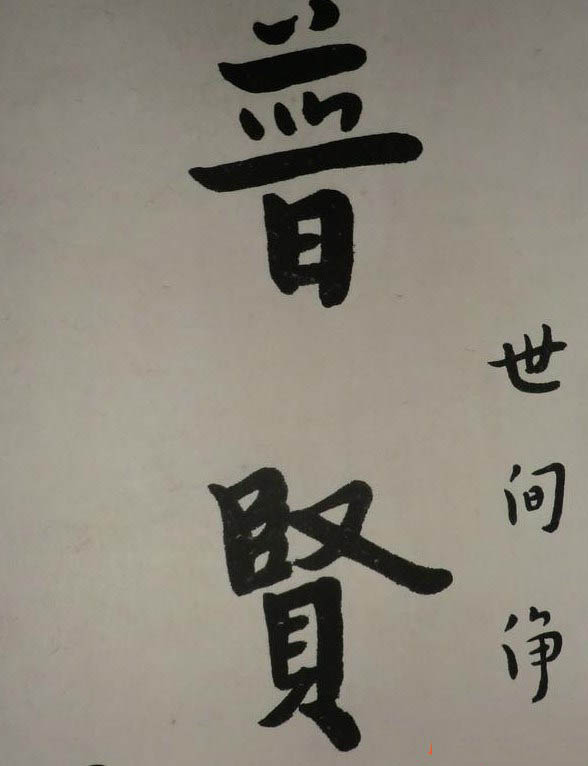 世间净
普賢